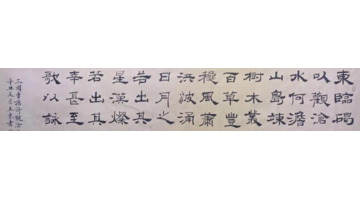 東臨碣
以觀滄
水何澹
山島竦
樹木叢
百草豊
風蕭
洪波涌
日月之
若出其
星漢燦
若出其
幸甚至
歌以詠
三國曹操詩觀滄